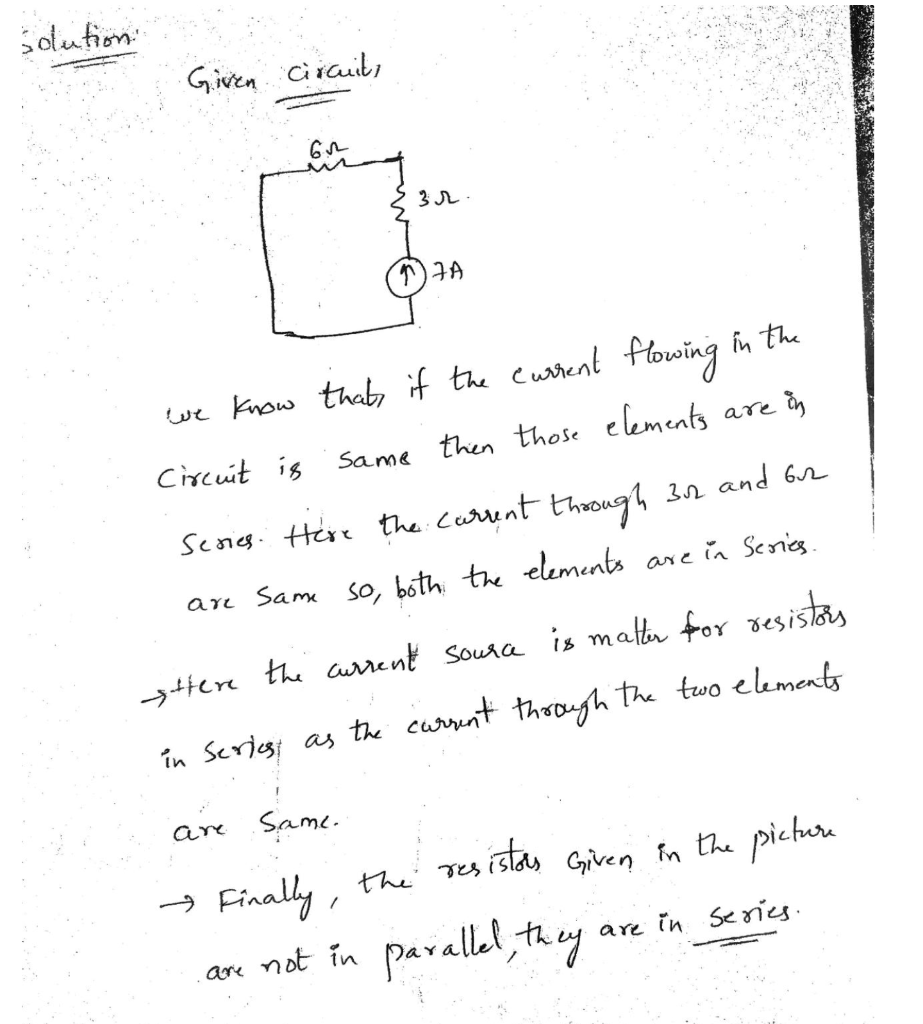 Solution:
Given Circuit,
6Ω
3Ω.
7A
we know that, if the current flowing in the
Circuit is same then those elements are in
Series. Here the current through 3Ω and 6Ω
are Same so, both the elements are in Series.
→ Here the current Soura is matter for resistors
in Series, as the current through the two elements
are Same.
→ Finally, the resistors Given in the picture
are not in parallel, they are in series.